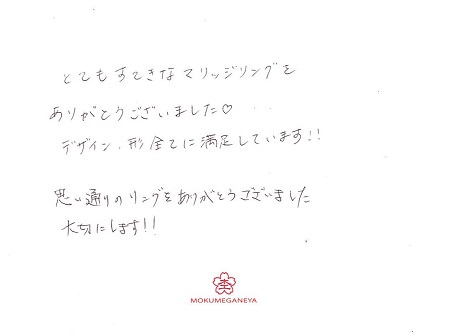 とてもすてきなマリッジリングを
ありがとうございました♡
デザイン、形全てに満足しています!!
思い通りのリングをありがとうございました
大切にします!!
杢
MOKUMEGANEYA